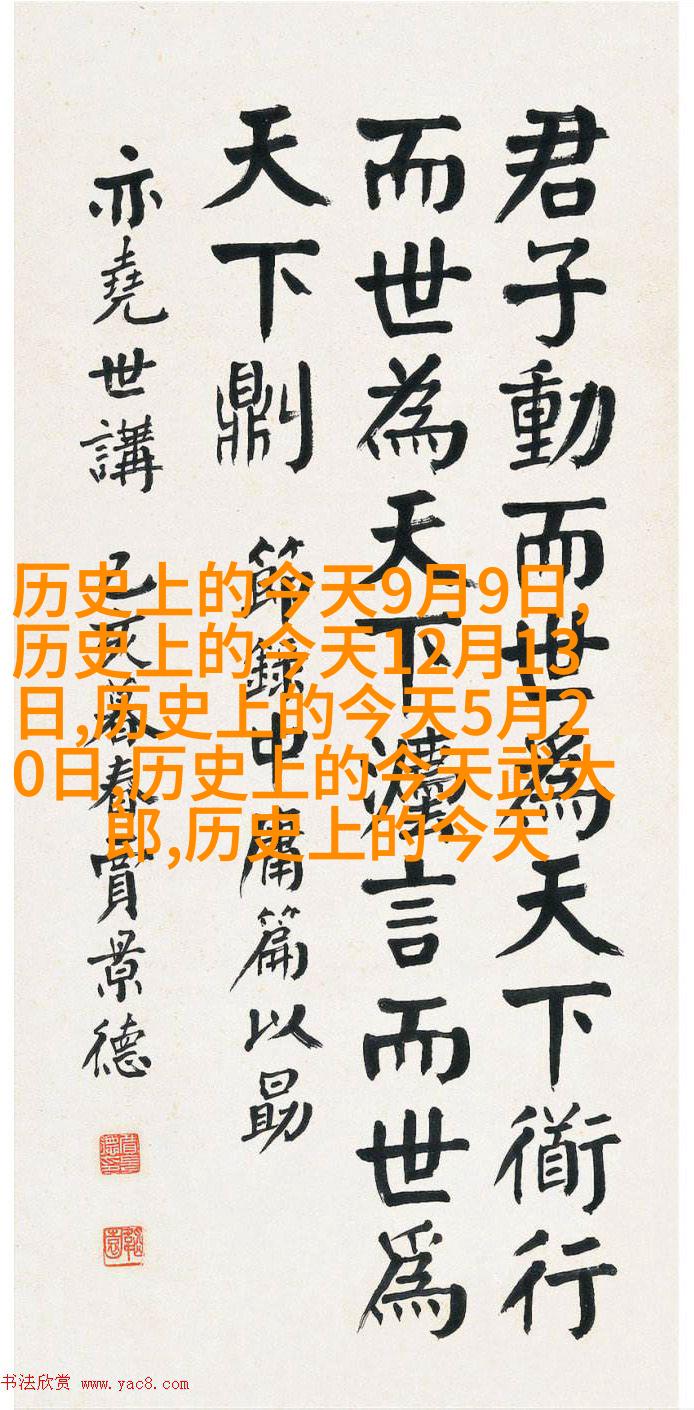 君子動而世為天下衜行
而世為天下灋言而世為
天下𠟭 節錄中庸篇以勗
亦堯世講 己亥暮春賈景德
历史上的今天9月9日,
历史上的今天12月13
日,历史上的今天5月2
0日,历史上的今天武大
郎,历史上的今天
书法欣赏 www.yac8.com